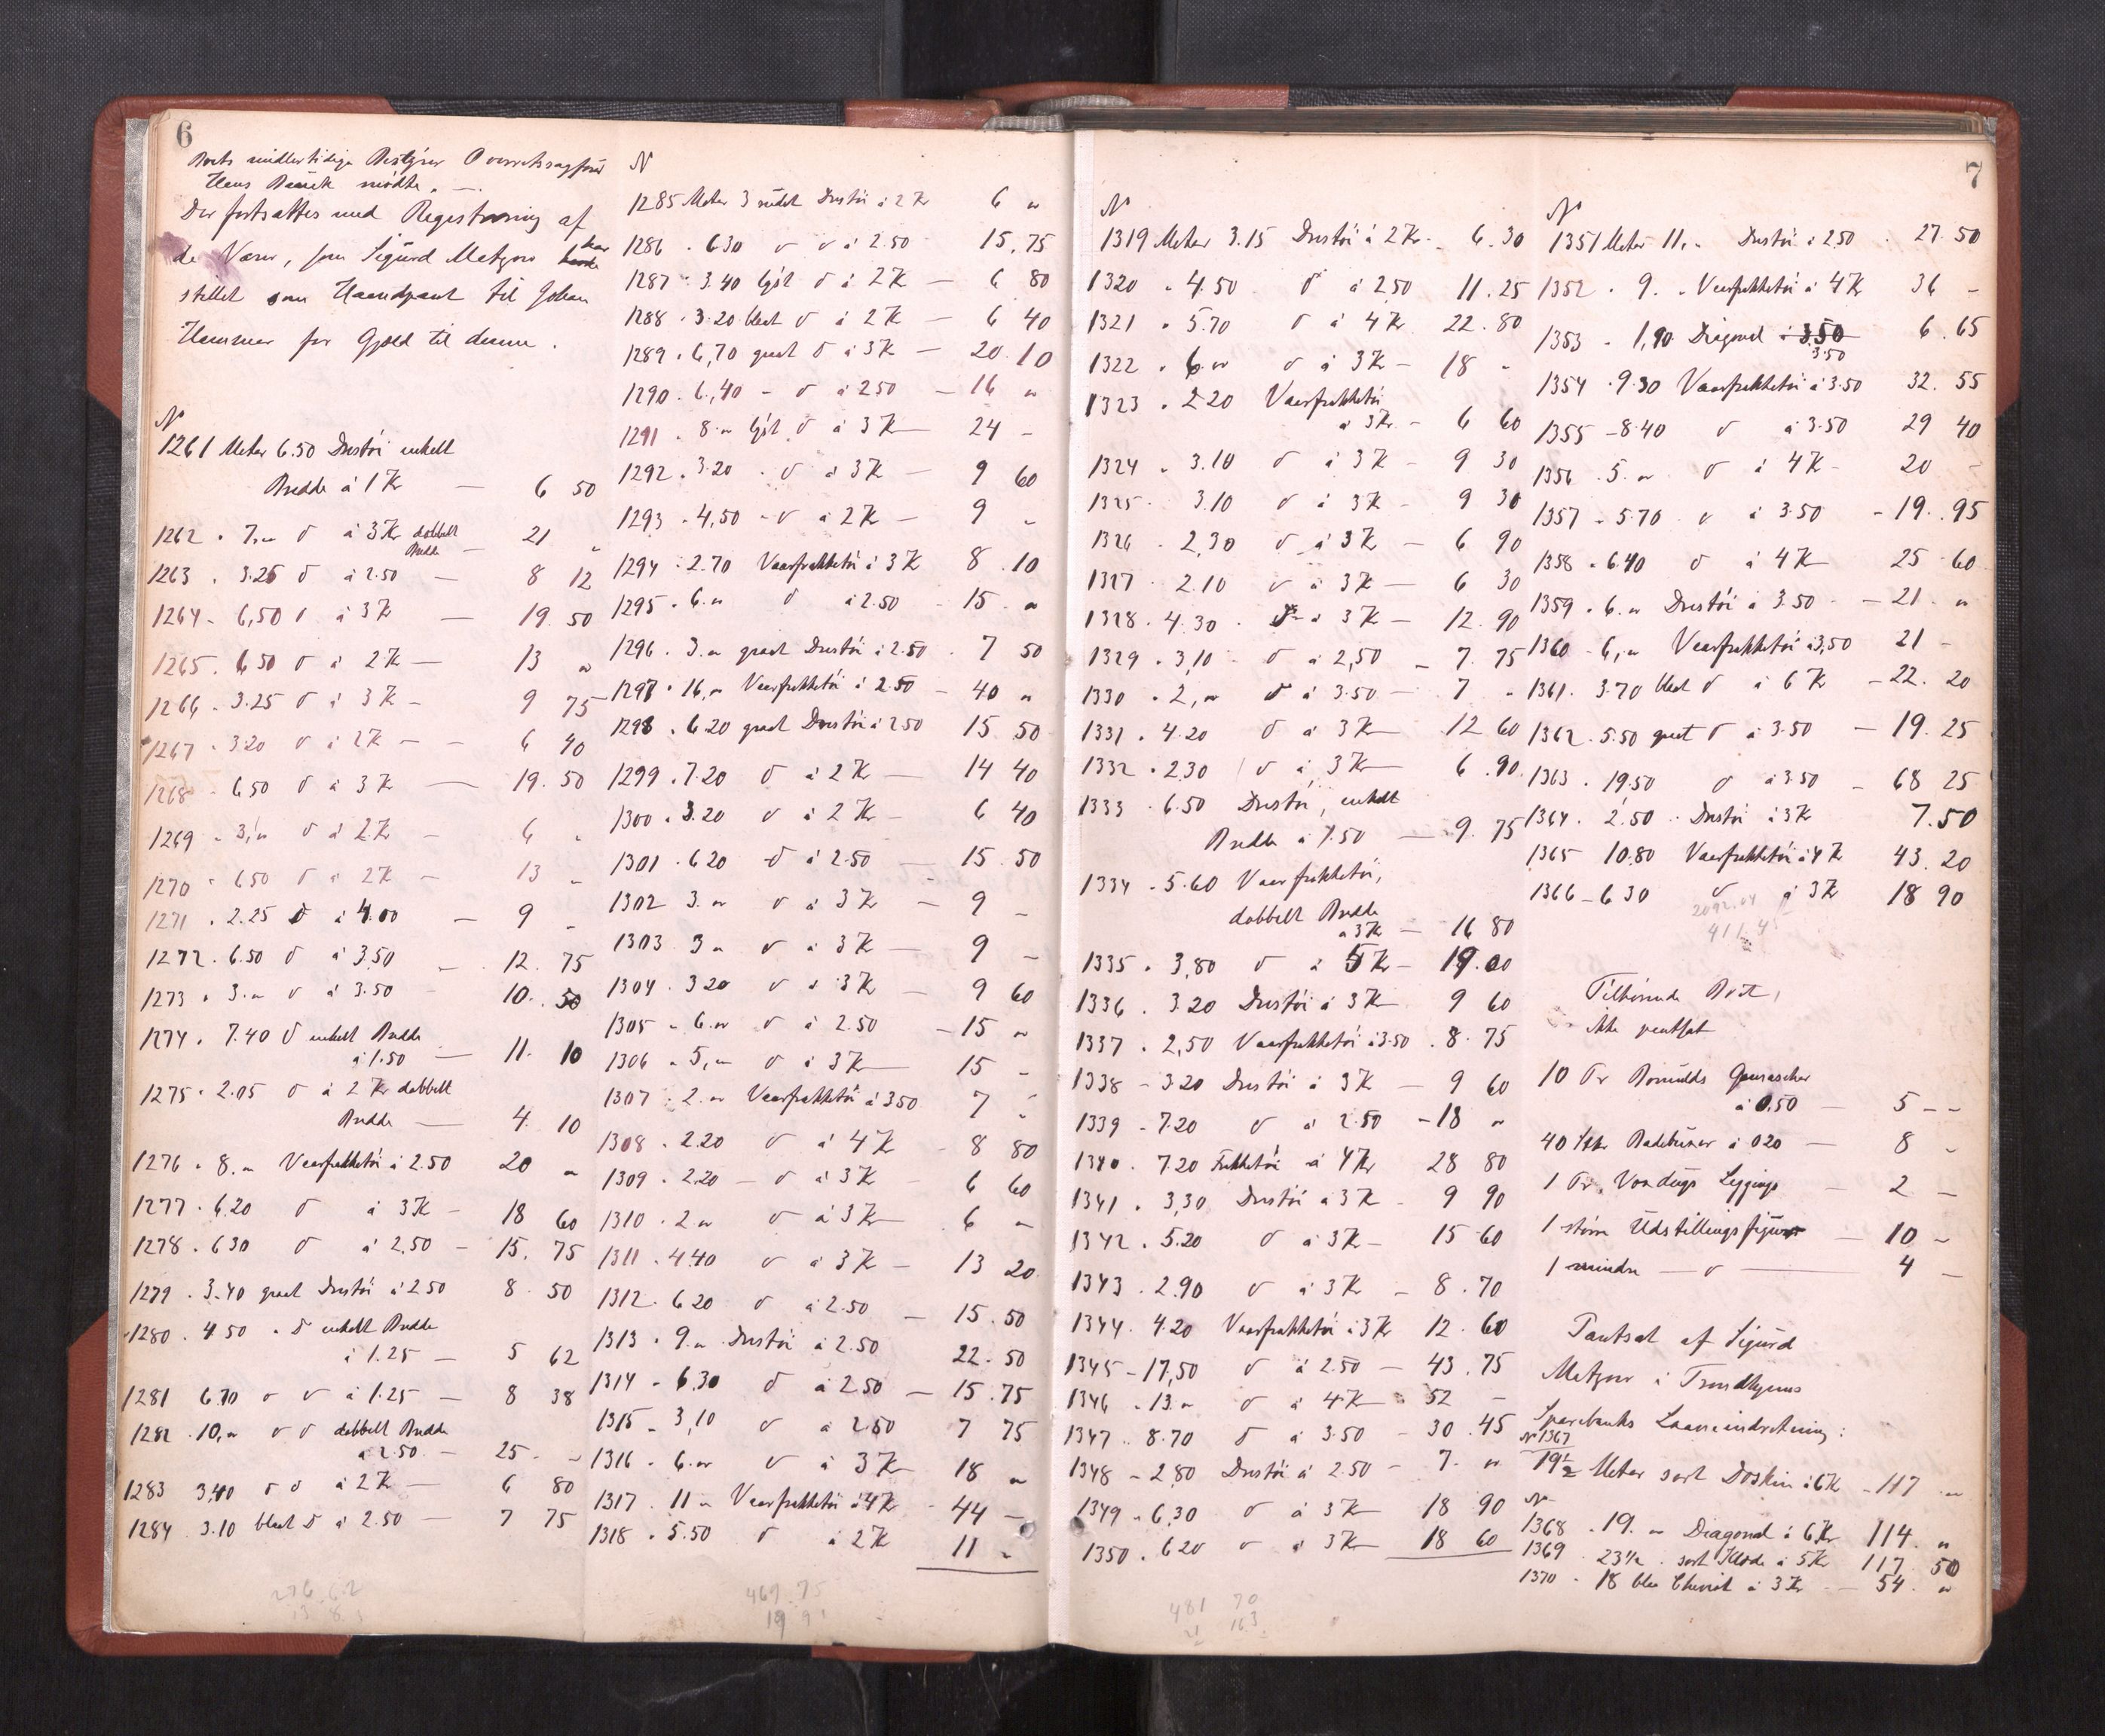 6
Boets midlertidige Bestyrer Overretssagfører
Hans Bauck mødte. —
Der fortsattes med Registrering af
de Varer, som Sigurd Metzger har
stillet som Haandpant til Johan
Hammer for Gjæld til denne.
N
1261 Meter 6.50 Drestøi enkelt
Bredde à 1 Kr — 6 50
1262 " 7,„ d à 3 Kr dobbelt Bredde — 21 „
1263 " 3.25 d à 2.50 — 8 12
1264 - 6,50 d à 3 Kr — 19.50
1265. 6.50 d à 2 Kr — 13 „
1266. 3.25 d à 3 Kr - 9 75
1267 " 3.20 d à 2 Kr — 6 40
1268 - 6.50 d à 3 Kr — 19.50
1269 " 3,„ d à 2 Kr — 6 „
1270 " 6.50 d à 2 Kr — 13 „
1271 . 2.25 d à 4.00 — 9 „
1272. 6.50 d à 3.50 — 12.75
1273 " 3.„ d à 3.50 10.50
1274 . 7.40 d enkelt Bredde
à 1.50 — 11. 10
1275 " 2.05 d à 2 Kr dobbelt
Bredde — 4. 10
1276 " 8.„ Vaarfrakketøi à 2.50 20 „
1277 - 6.20 d à 3 Kr - 18 60
1278 . 6.30 d à 2.50 - 15. 75
1279 . 3.40 graat Drestøi à 2.50 8.50
1280 . 4.50 " d enkelt Bredde
à 1.25 — 5 62
1281 6.70 d d à 1.25 — 8 38
1282 . 10,„ d d dobbelt Bredde
à 2.50 — 25. „
1283 3,40 d d à 2 Kr — 6 80
1284 . 3.10 blaat d à 2.50 — 7 75
276.62
N
1285 Meter 3 rudet Drestøi à 2 Kr 6 „
1286 . 6.30 d d à 2.50 15.75
1287 - 3.40 lyst d à 2 Kr — 6 80
1288 . 3.20 blaat d à 2 Kr — 6 40
1289 . 6,70 graat d à 3 Kr — 20.10
1290 . 6,40 - d à 2.50 — 16 „
1291 . 8.„ lyst d à 3 Kr — 24 -
1292 . 3.20 - d à 3 Kr — 9 60
1293 . 4,50 - d à 2 Kr — 9 „
1294 - 2.70 Vaarfrakketøi à 3 Kr 8.10
1295 . 6.„ d à 2.50 - 15. „
1296 . 3.„ graat Drestøi à 2.50 . 7 50
1297 . 16,„ Vaarfrakketøi à 2.50 — 40 „
1298 . 6.20 graat Drestøi à 2.50 15 50
1299 . 7.20 d à 2 Kr — 14 40
1300 . 3.20 d à 2 Kr — 6 40
1301 . 6.20 d à 2.50 — 15.50
1302 3.„ d à 3 Kr — 9 „
1303 3 „ d à 3 Kr — 9 -
1304 . 3.20 d à 3 Kr — 9 60
1305 - 6.„ d à 2.50 — 15 „
1306 . 5,„ d à 3 Kr — 15 -
1307 . 2.„ Vaarfrakketøi à 3.50 7 „
1308 . 2.20 d à 4 Kr - 8 80
1309 . 2.20 — d à 3 Kr - 6 60
1310 . 2 „ d à 3 Kr — 6 „
1311 . 4.40 d à 3 Kr — 13 20
1312 . 6.20 d à 2.50 — 15.50
1313 . 9.„ Drestøi à 2.50 22.50
1314 - 6.30 d à 2.50 — 15.75
1315 - 3,10 d à 2.50 7 75
1316 - 6.„ d à 3 Kr 18 „
1317 . 11 „ Vaarfrakketøi à 4 Kr - 44 -
1318 . 5.50 d à 2 Kr 11 „
469.75
7
N
1319 Meter 3.15 Drestøi à 2 Kr - 6.30
1320 . 4.50 d à 2.50 11.25
1321 . 5.70 d à 4 Kr 22.80
1322 . 6.„ d à 3 Kr — 18 -
1323 . 2.20 Vaarfrakketøi
à 3 Kr - 6 60
1324 . 3.10 d à 3 Kr - 9 30
1325 . 3.10 d à 3 Kr - 9 30
1326 . 2,30 d à 3 Kr — 6 90
1327 . 2.10 d à 3 Kr — 6 30
1328 . 4.30 . d à 3 Kr — 12.90
1329 . 3,10 - d à 2,50 — 7.75
1330 . 2,„ d à 3.50 — 7 „
1331 . 4.20 d à 3 Kr 12 60
1332 . 2.30 d à 3 Kr 6.90
1333 . 6.50 Drestøi, enkelt
Bredde à 1.50 — 9.75
1334 . 5.60 Vaarfrakketøi,
dobbelt Bredde
à 3 Kr — 16 80
1335 . 3,80 d à 5 Kr — 19.00
1336 . 3.20 Drestøi à 3 Kr 9 60
1337 . 2,50 Vaarfrakketøi à 3.50 . 8.75
1338 - 3.20 Drestøi à 3 Kr — 9 60
1339 - 7.20 d à 2.50 - 18 „
1340 . 7.20 Frakketøi à 4 Kr 28 80
1341 . 3,30 Drestøi à 3 Kr - 9 90
1342 . 5.20 d à 3 Kr — 15 60
1343 . 2.90 d à 3 Kr — 8.70
1344 . 4.20 Vaarfrakketøi à 3 Kr 12.60
1345 - 17,50 d à 2.50 — 43.75
1346 . 13.„ d à 4 Kr - 52 -
1347 . 8.70 d à 3.50 - 30.45
1348 - 2,80 Drestøi à 2.50 - 7. „
1349 . 6.30 d à 3 Kr 18 90
1350 . 6.20 d à 3 Kr 18 60
481 70
163
N
1351 Meter 11.- Drestøi à 2.50 . 27.50
1352 . 9. „ Vaarfrakketøi à 4 Kr 36 -
1353 - 1,90 Diagonal à 3.50 6.65
3.50
1354 . 9.30 Vaarfrakketøi à 3.50 32.55
1355 - 8.40 d à 3.50 29 40
1356 . 5.„ d à 4 Kr - 20 -
1357 - 5.70 d à 3.50 - 19.95
1358 . 6.40 d à 4 Kr 25.60
1359 . 6.„ Drestøi à 3.50 — 21. „
1360 - 6,„ Vaarfrakketøi à 3,50 21 -
1361 . 3.70 blaat d à 6 Kr - 22. 20
1362 . 5.50 graat d à 3.50 — 19.25
1363 . 19.50 d à 3.50 - 68 25
1364 . 2.50 . Drestøi à 3 Kr 7.50
1365 10.80 Vaarfrakketøi à 4 Kr 43.20
1366 - 6.30 d à 3 Kr 18 90
2092.04
411.45
Tilhørende Boet,
ikke pantsat
10 Pr Bomulds Gamascher
à 0.50 — 5 - -
40 Stkr Badebuxer à 0.20 — 8 -
1 Pr. Voxdugs Leggings — 2 —
1 større Udstillingsfigur — 10 -
1 mindre — d — 4 —
Pantsat af Sigurd
Metzger i Trondhjems
Sparebanks Laaneindretning:
N 1367
19½ Meter sort Doskin à 6 Kr - 117 „
N
1368 . 19. „ Diagonal à 6 Kr 114. „
1369 . 23½ . sort Klæde à 5 Kr 117.50
1370 - 18 blaa Cheviot à 3 Kr — 54. „